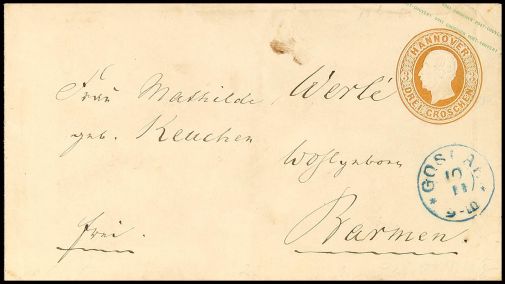 HANNOVER
DREI GROSCHEN
Frau Mathilde Werlé
geb. Keuchen
Wohlgeborn
GOSLAR
10
11
frei.
Barmen.